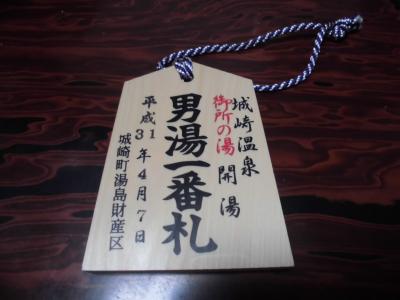 城崎温泉
御所の湯 開湯
男湯一番札
平成31年4月7日
城崎町湯島財産区